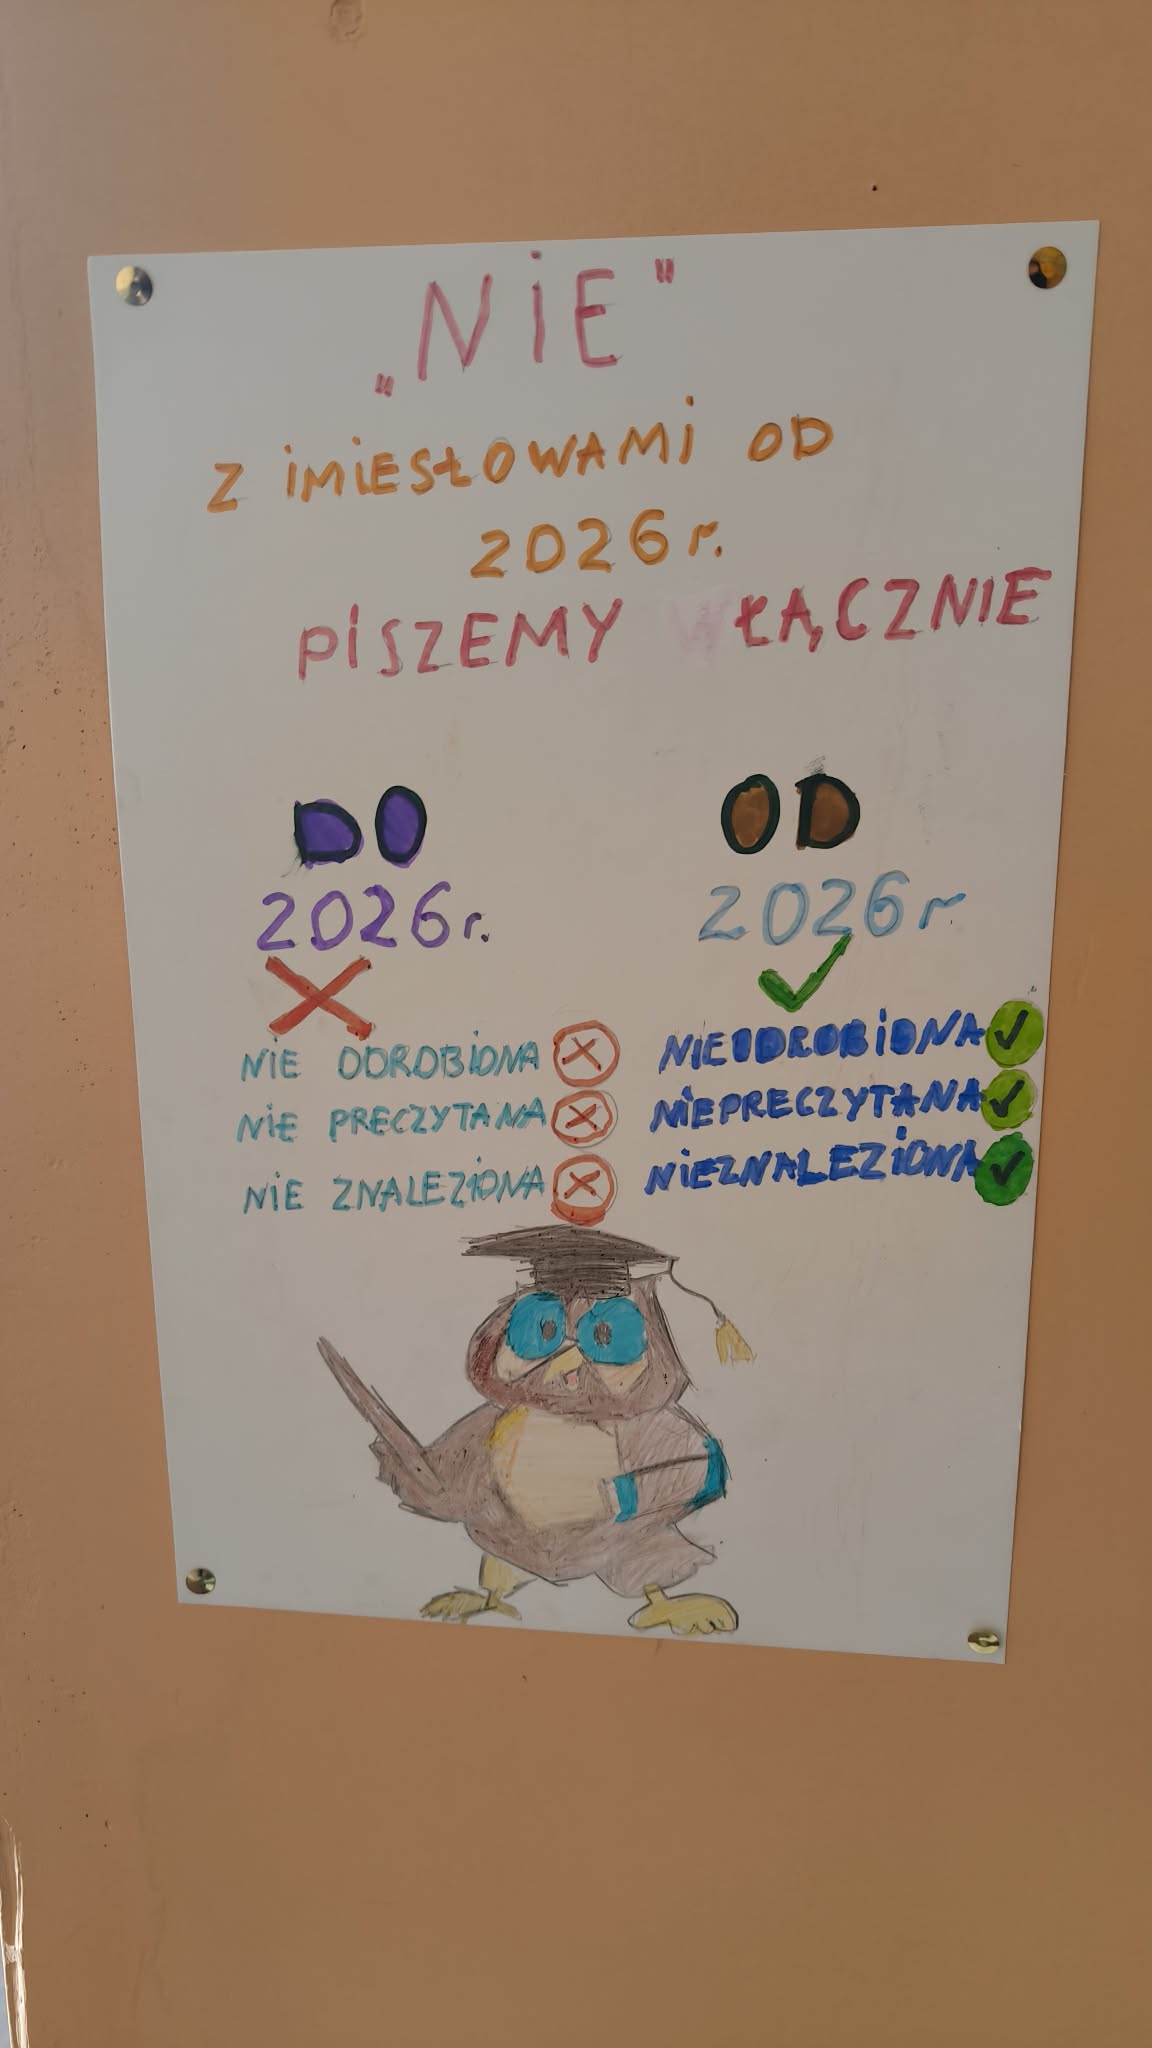 „NIE"
Z IMIESŁOWAMI OD
2026 r.
PISZEMY ŁĄCZNIE
DO
2026 r.
NIE ODROBIONA
NIE PRECZYTANA
NIE ZNALEZIONA
OD
2026 r
NIEODROBIONA
NIEPRECZYTANA
NIEZNALEZIONA